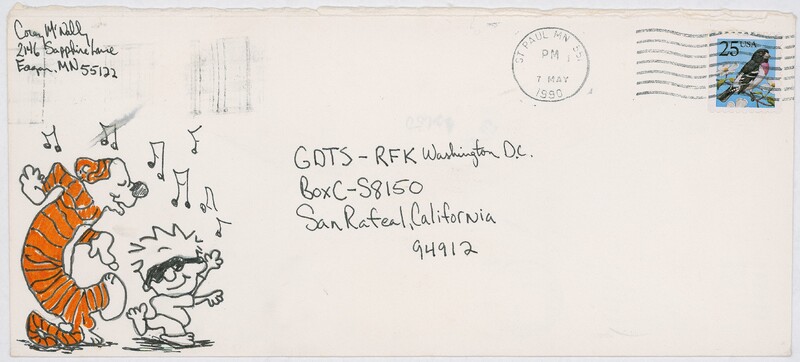 Corey McNally
2146 Sapphire Lane
Eagan, MN 55122
ST PAUL MN 551
PM
7 MAY
1990
25 USA
GDTS-RFK Washington D.C.
Box C-S8150
San Rafeal, California
94912